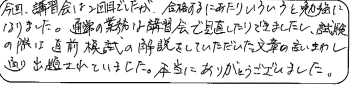 今回、講習会は2回目でしたが、合格するにあたりいろいろと勉強に
なりました。通常の業務は講習会で見直したりできましたし、試験
の際は直前模試の解説をしていただいた文章の言いまわし
通り出題されていました。本当にありがとうございました。